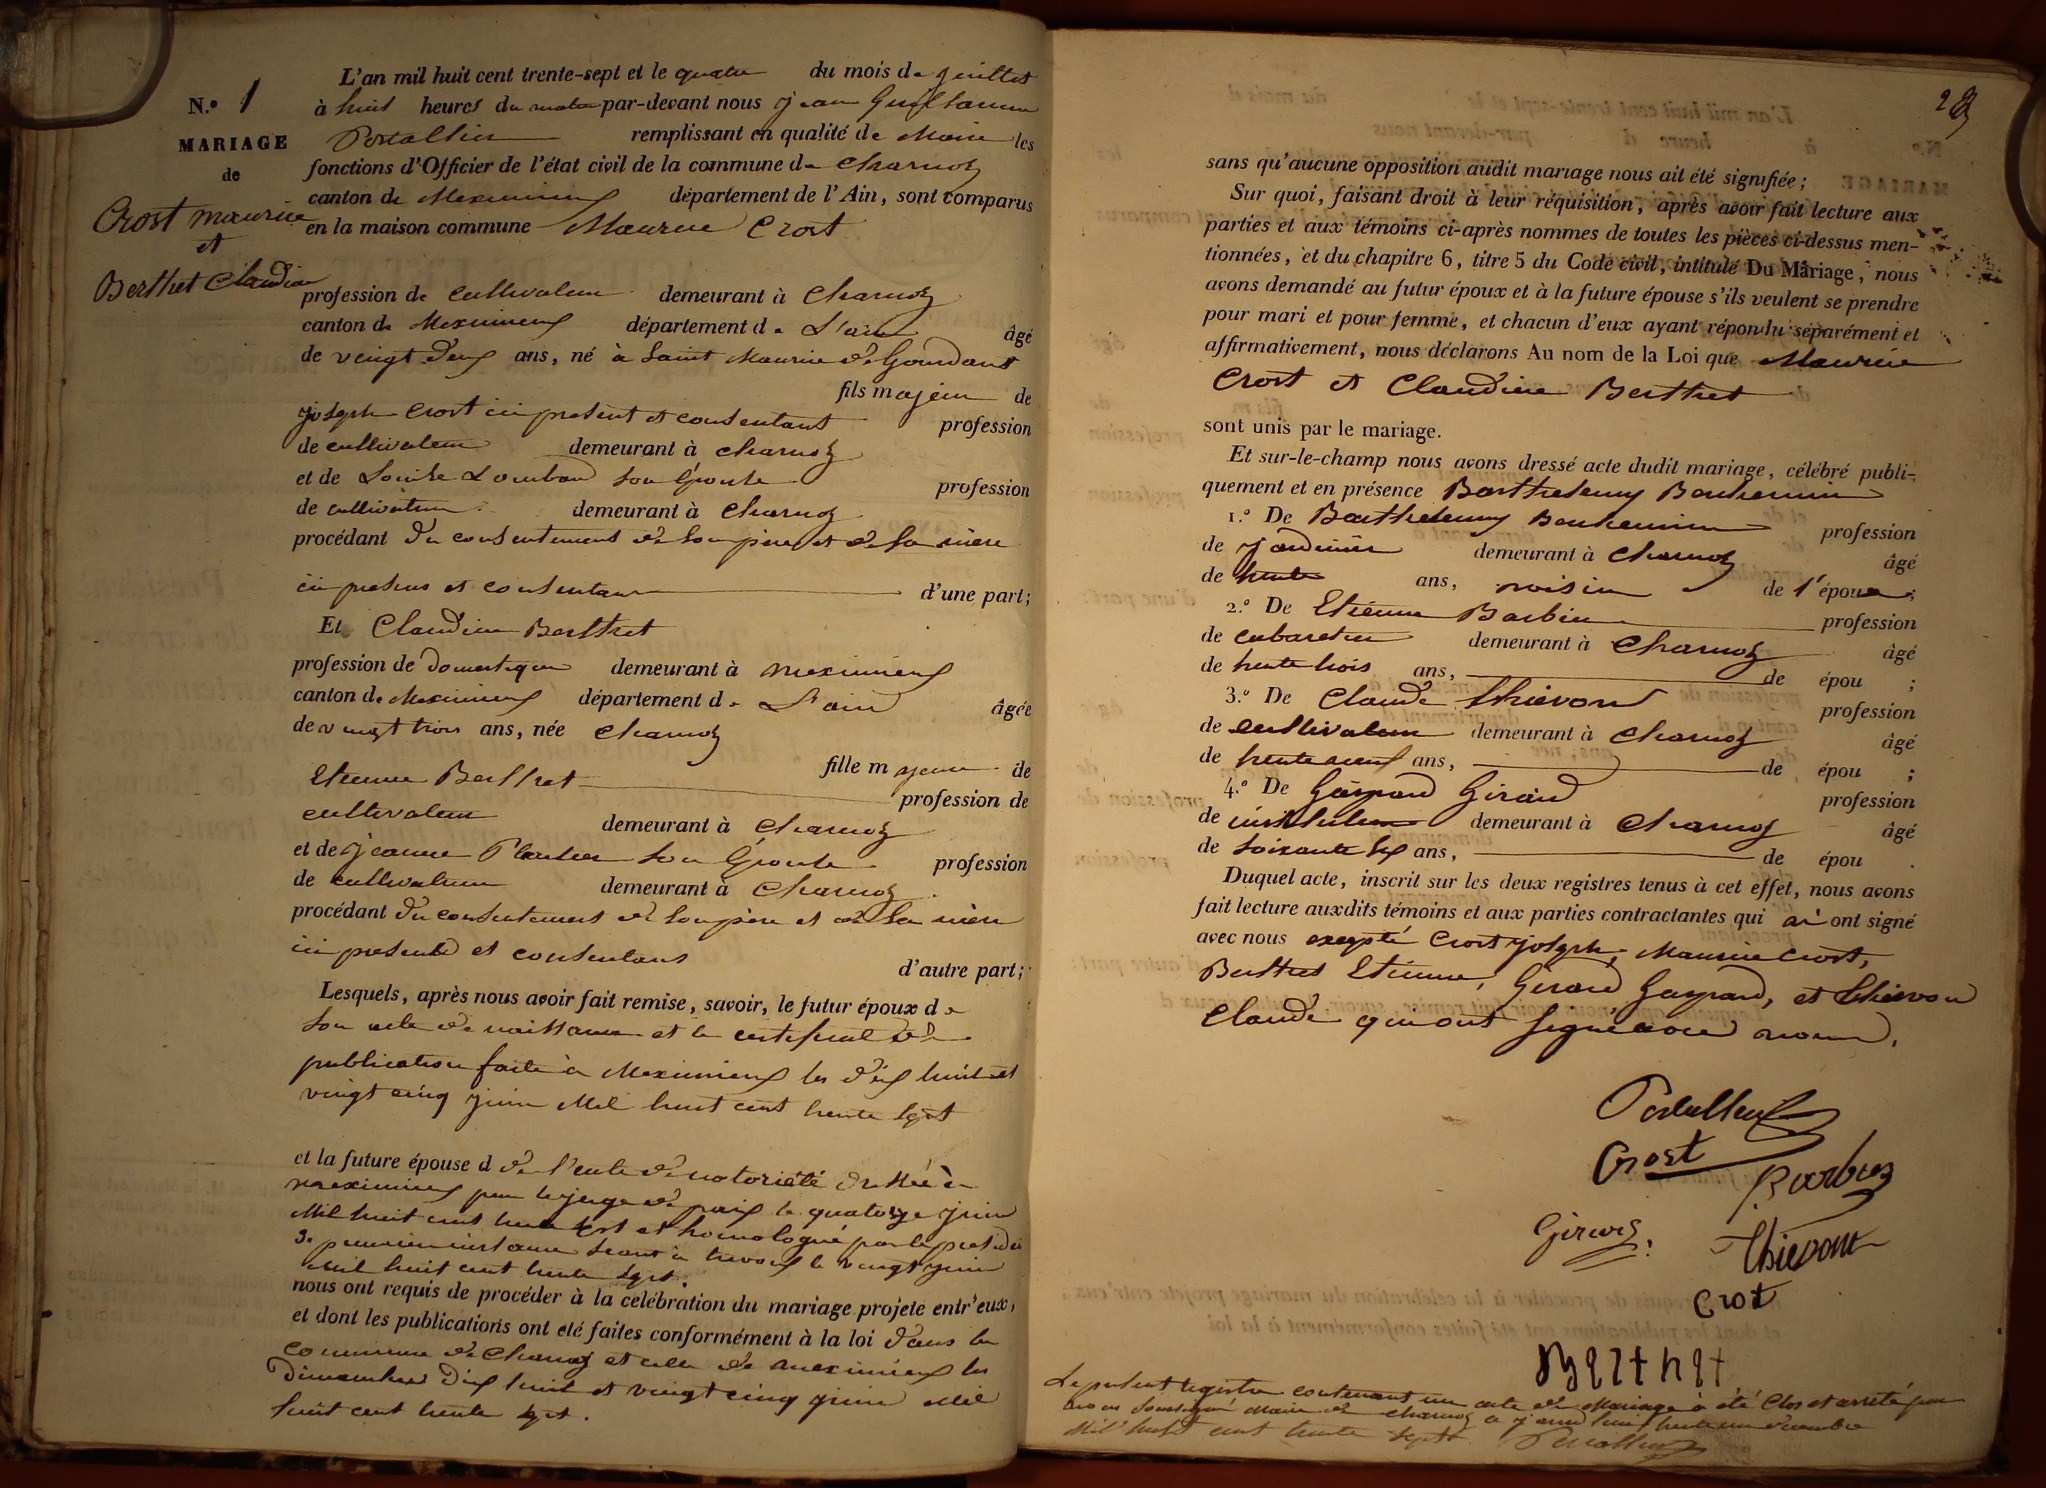 N.º 1
MARIAGE
de
Crost maurice
et
Berthet Claudine
L'an mil huit cent trente-sept et le quatre du mois de juillet
à huit heures du matin par-devant nous jean Guillaume
Portallier remplissant en qualité de Maire les
fonctions d'Officier de l'état civil de la commune de Charnoz
canton de Meximieux département de l'Ain, sont comparus
en la maison commune Maurice Crost
profession de cultivateur demeurant à Charnoz
canton de Meximieux département de L'ain âgé
de vingt deux ans, né à Saint Maurice de Gourdans
fils majeur de
joseph Crost ici present et consentant profession
de cultivateur demeurant à charnoz
et de Louise son Epouse profession
de cultivatrice demeurant à Charnoz
procédant du consentement de son père et de sa mère
ici presens et consentans d'une part;
Et Claudine Berthet
profession de domestique demeurant à meximieux
canton de Meximieux département de L'ain âgée
de vingt trois ans, née Charnoz
fille majeure de
Etienne Berthet profession de
cultivateur demeurant à Charnoz
et de jeanne son Epouse profession
de cultivatrice demeurant à Charnoz
procédant du consentement de son père et de sa mère
ici presents et consentans d'autre part;
Lesquels, après nous avoir fait remise, savoir, le futur époux de
son acte de naissance et le certificat de
publication faite à Meximieux les dix huit et
vingt cinq juin Mil huit cent trente sept
et la future épouse d de l'acte de notoriété dressé à
meximieux par le juge de paix le quatorze juin
Mil huit cent trente sept et homologué par le
premiere instance seant à trevoux le vingt juin
mil huit cent trente sept.
nous ont requis de procéder à la célébration du mariage projeté entr'eux,
et dont les publications ont été faites conformément à la loi dans la
commune de Charnoz et celle de meximieux les
Dimanches dix huit et vingt cinq juin Mil
huit cent trente sept.
sans qu'aucune opposition audit mariage nous ait été signifiée;
Sur quoi, faisant droit à leur réquisition, après avoir fait lecture aux
parties et aux témoins ci-après nommés de toutes les pièces ci-dessus men-
tionnées, et du chapitre 6, titre 5 du Code civil, intitulé Du Mariage, nous
avons demandé au futur époux et à la future épouse s'ils veulent se prendre
pour mari et pour femme, et chacun d'eux ayant répondu séparément et
affirmativement, nous déclarons Au nom de la Loi que Maurice
Crost et Claudine Berthet
sont unis par le mariage.
Et sur-le-champ nous avons dressé acte dudit mariage, célébré publi-
quement et en présence Barthelemy
1.º De Barthelemy profession
de jardinier demeurant à Charnoz âgé
de trente ans, voisin de l'époux;
2.º De Etienne Barbier profession
de cabaretier demeurant à Charnoz âgé
de trente trois ans, de épou ;
3.º De Claude thievon profession
de cultivateur demeurant à Charnoz âgé
de trente neuf ans, de épou ;
4.º De Gaspard Girard profession
de instituteur demeurant à Charnoz âgé
de soixante six ans, de épou .
Duquel acte, inscrit sur les deux registres tenus à cet effet, nous avons
fait lecture auxdits témoins et aux parties contractantes qui ont signé
avec nous excepté Crost joseph, Maurice Crost,
Berthet Etienne, Girard Gaspard, et thievon
Claude qui ont signé avec nous.
Portallier
Crost
Barbier
Girard
thievont
Crot
Berthet
Le present registre contenant un acte de Mariage a été Clos et arreté par
nous soussigné Maire de charnoz trente un decembre
Mil huit cent trente sept Portallier